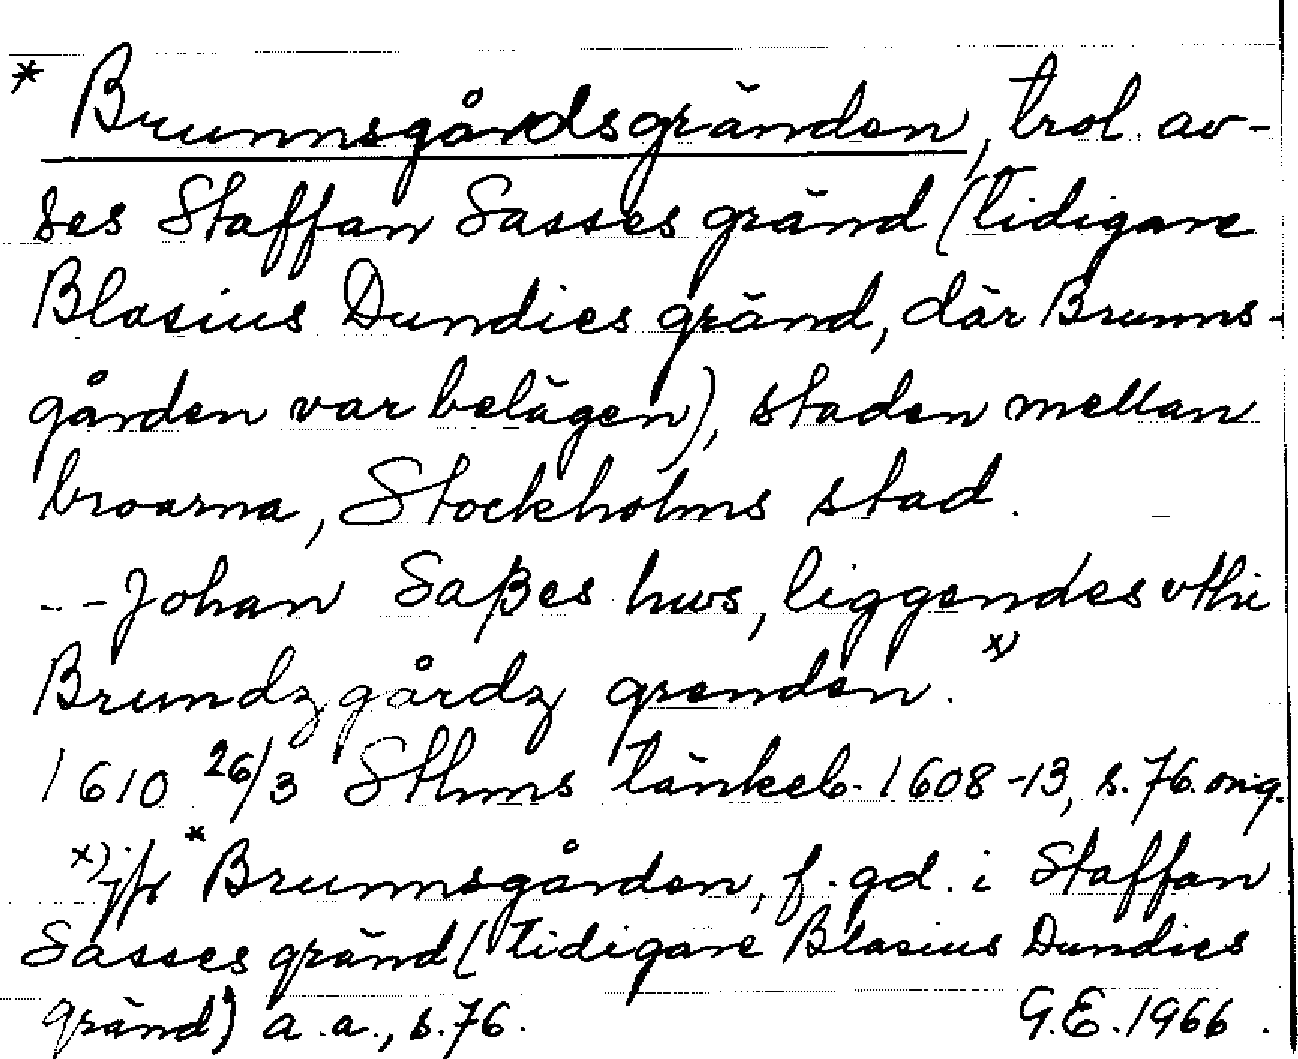 * Brunnsgårdsgränden, trol. av-
ses Staffan Sasses gränd (tidigare
Blasius Dundies gränd, där Brunns-
gården var belägen), staden mellan
broarna, Stockholms stad.
- - Johan Saßes hws, liggendes vthi
Brundzgårdz grenden. x)
1610 26/3 Sthms tänkeb. 1608-13, s. 76. orig.
x) jfr * Brunnsgården, f. gd. i Staffan
Sasses gränd (tidigare Blasius Dundies
gränd) a. a., s. 76. G.E. 1966.